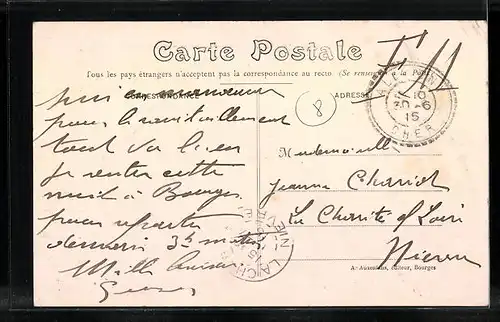 Carte Postale
Tous les pays étrangers n'acceptent pas la correspondance au recto. (Se renseigner à la Poste)
F M
CORRESPONDANCE
ADRESSE
8
10
30-6
15
CHER
pour le ravitaillement
tout va bien
Je rentre cette
nuit à Bourges
pour repartir
demain 3h
Mille baisers
Mademoiselle
Jeanne
La Charité s/ Loire
Nièvre
LA CH
NIEVRE
A. Auxenfans, éditeur, Bourges